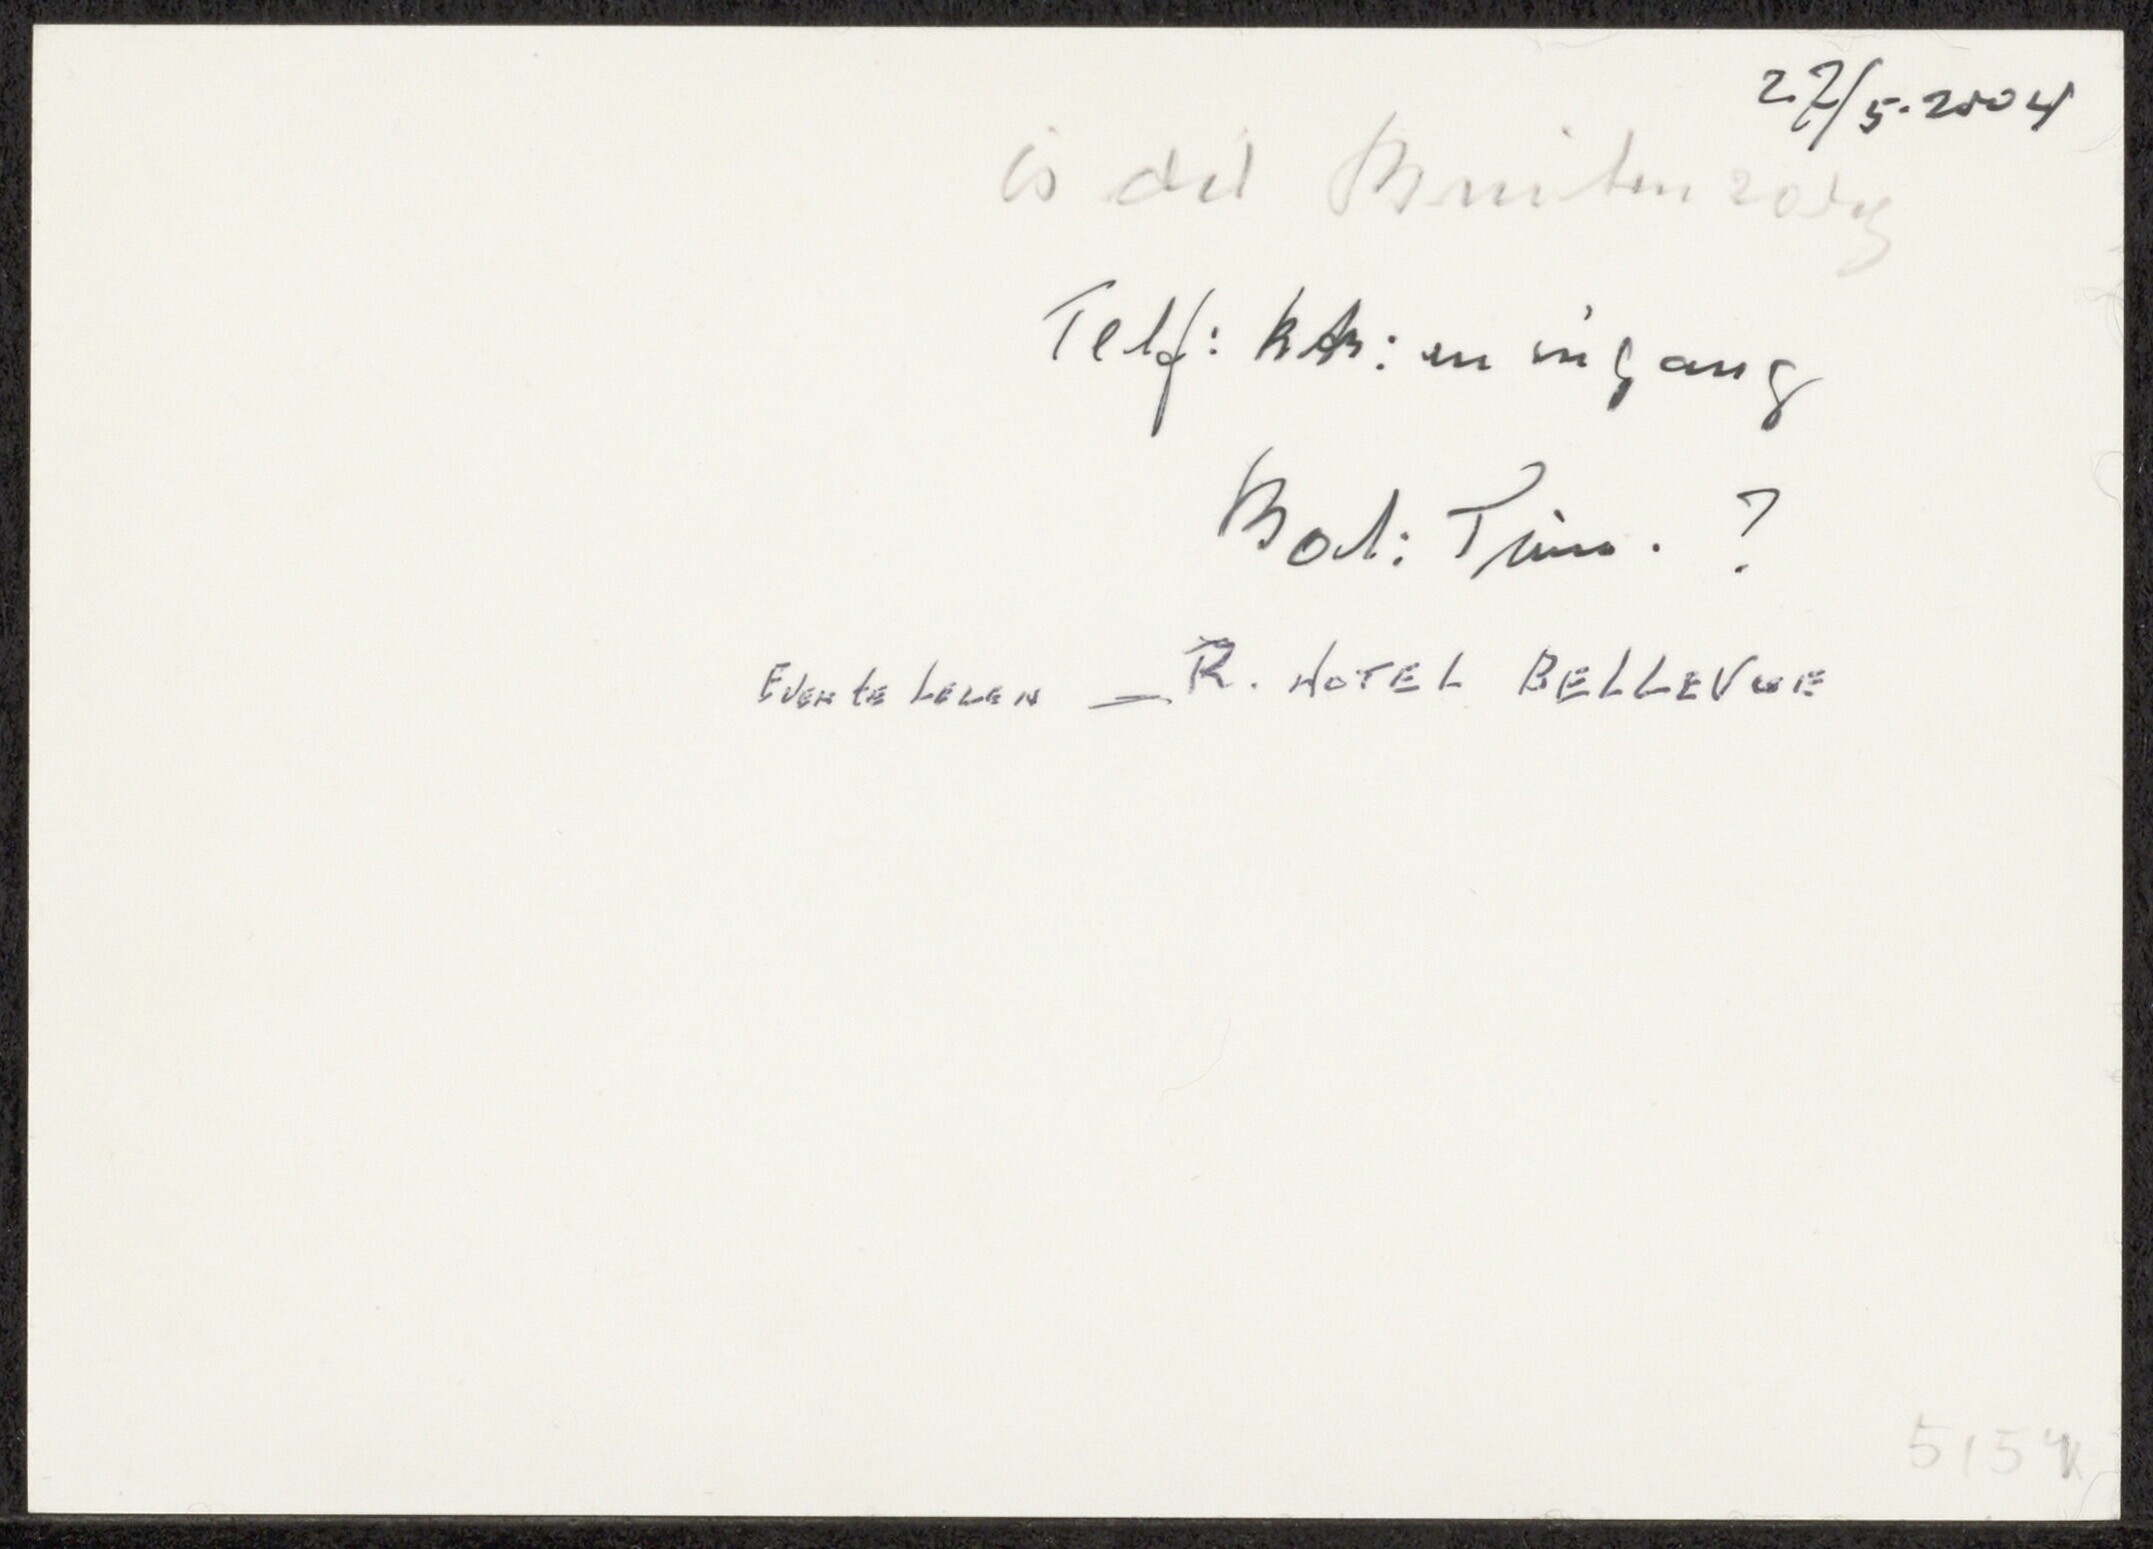 27/5-2004
is dit Buitenzorg
Telf: en ingang
Bod: Tuin. ?
EVEN te LEZEN — R. HOTEL BELLEVUE
5154